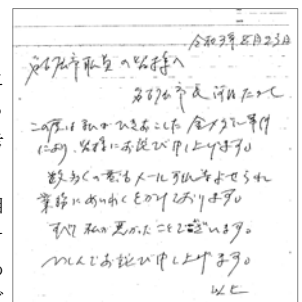 令和3年8月23日
名古屋市職員の皆様へ
名古屋市長 河村たかし
この度は私がひきおこした金メダル事件
により、皆様にお詫び申し上げます。
数多くの電話メール 等よせられ
業務にめいわくをかけております。
すべて私が悪かったことでございます。
つつしんでお詫び申し上げます。
以上